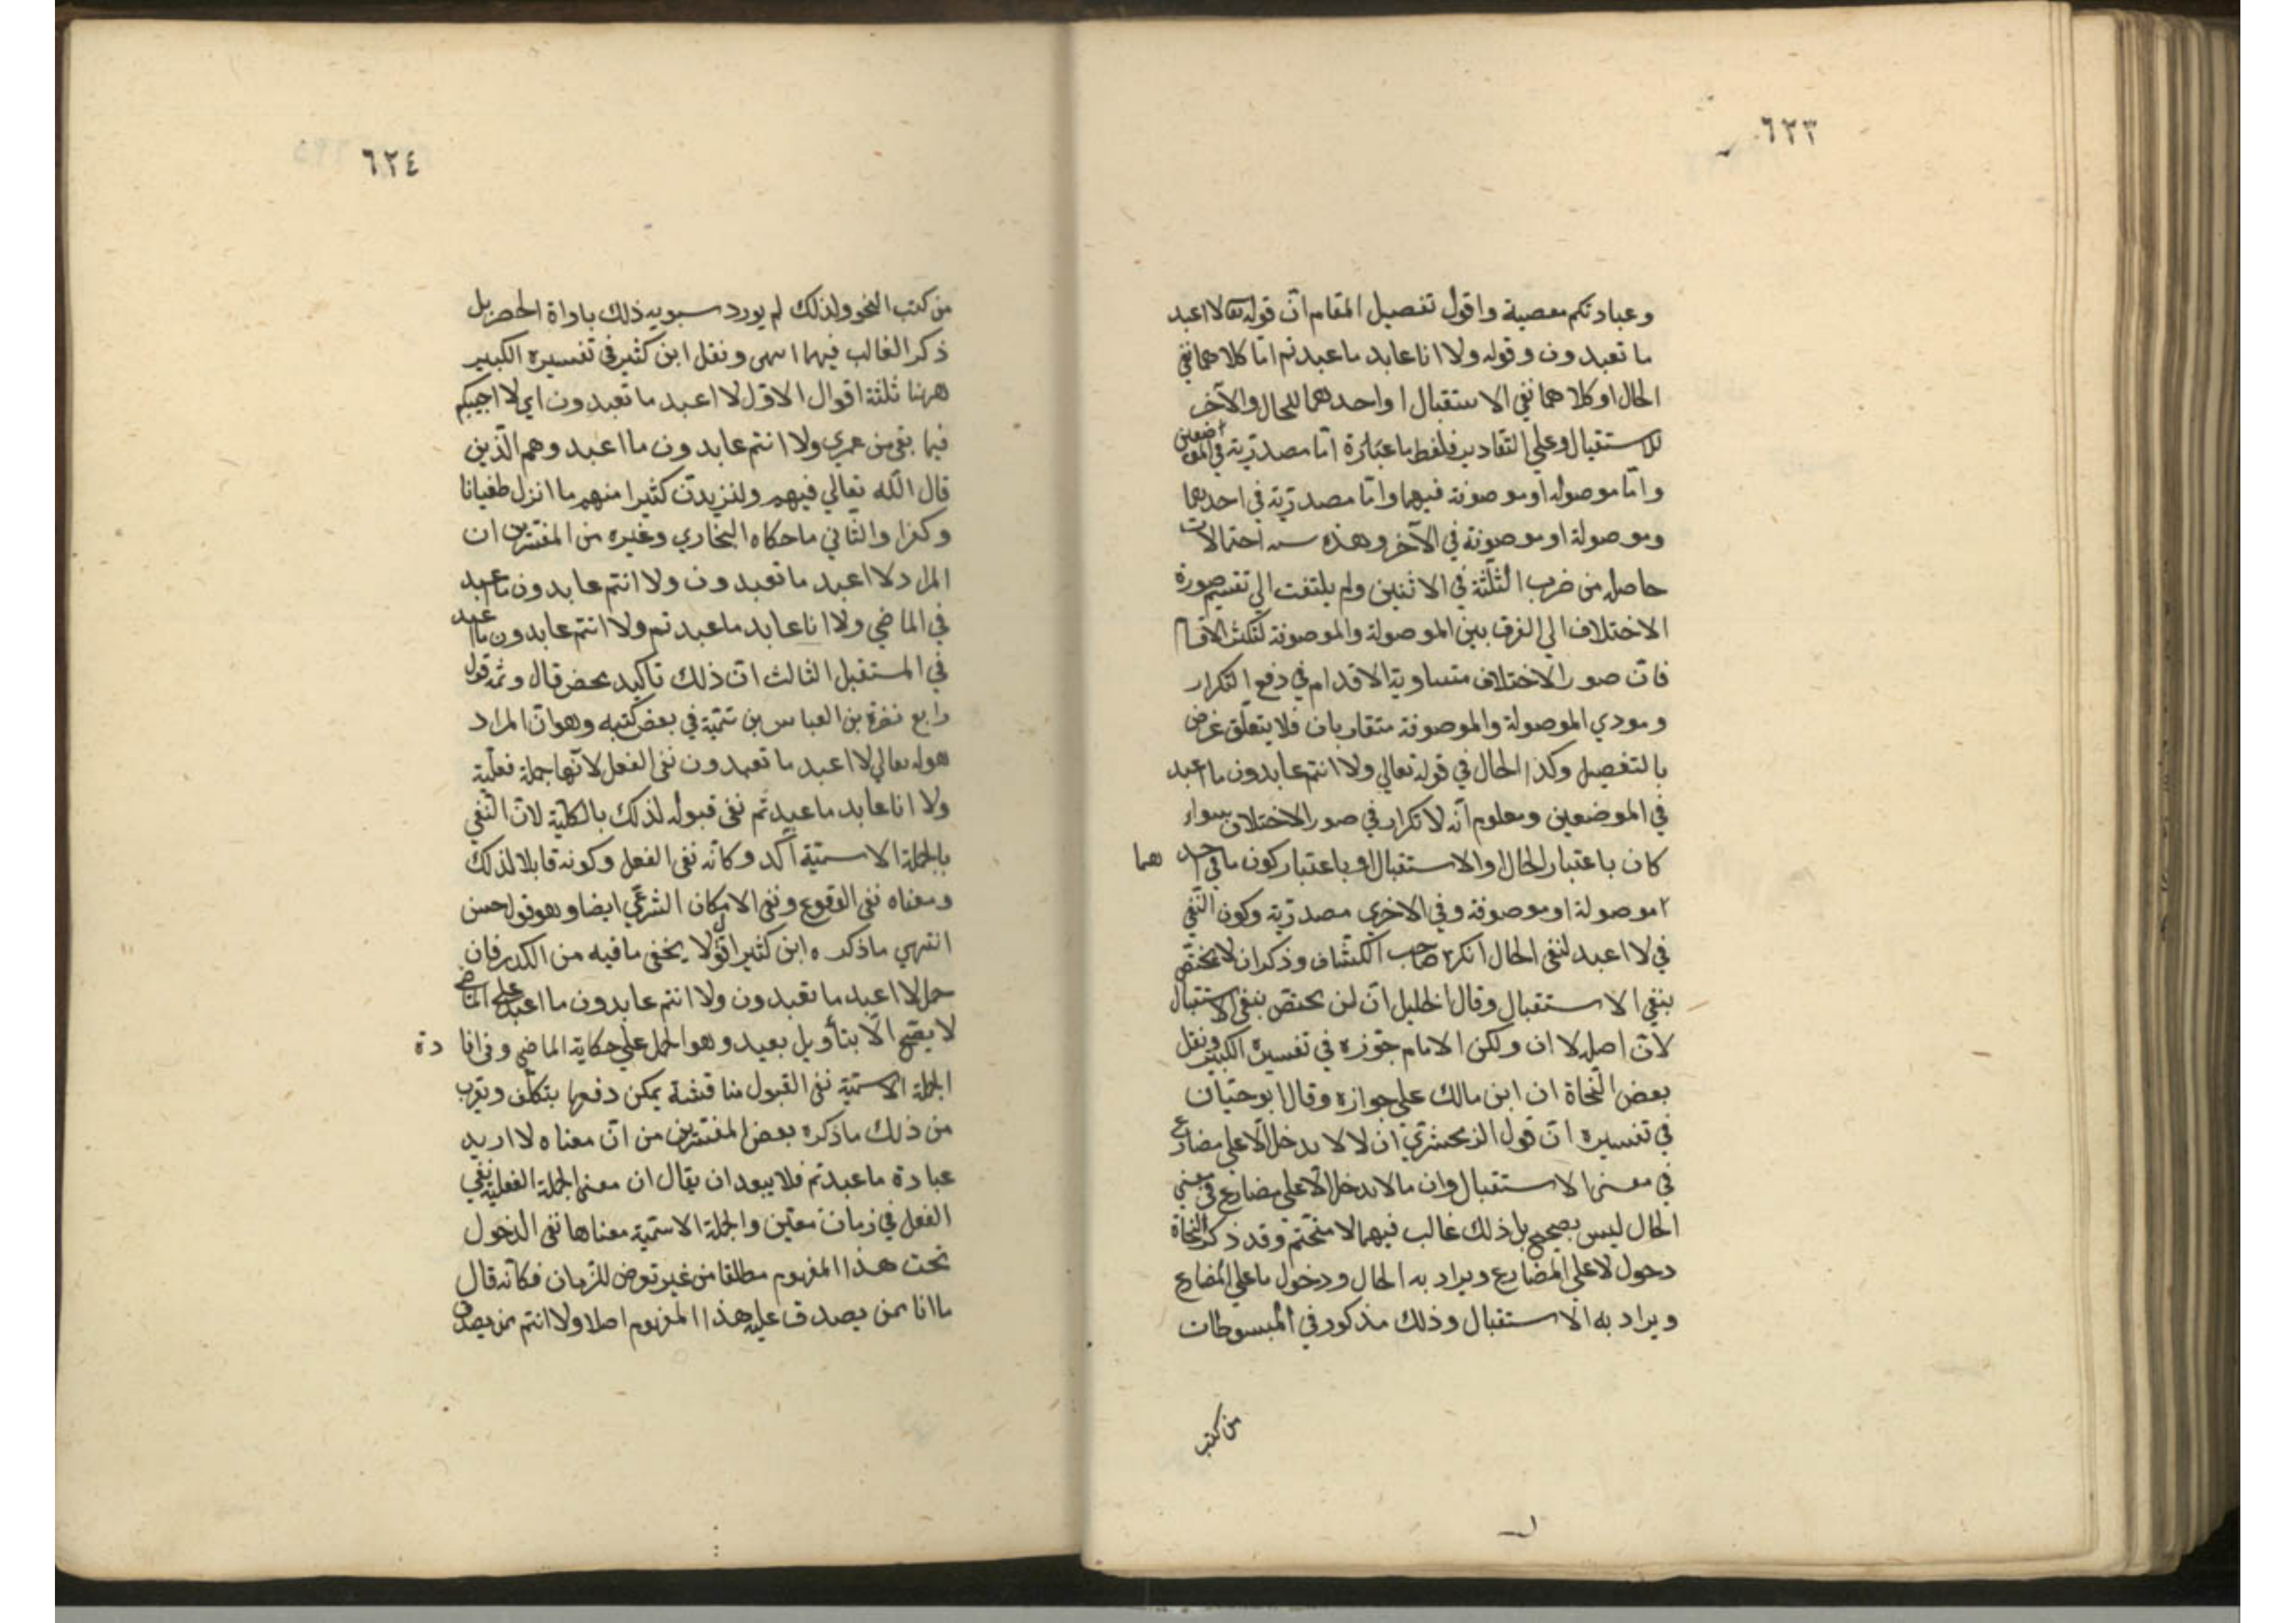 ٦٢٣
وعبادتكم معصية واقول تفصيل المقام انّ قوله تعا لا اعبد
ما تعبدون وقوله ولا انا عابد ما عبدتم امّا كلاهما نفي
الحال او كلاهما نفي الاستقبال او احدهما للحال والآخر
للاستقبال وعلي التقادير فلفظ ما عبارة امّا مصدريّة في الموضعين
وامّا موصوله او موصوفة فيهما وامّا مصدريّة في احدهما
وموصولة او موصوفة في الآخر وهذه سته احتمالات
حاصله من ضرب الثلثة في الاثنين ولم يلتفت الي تقسيم صورة
الاختلاف الي الفرق بين الموصولة والموصوفة لتكثر الاقسام
فانّ صور الاختلاف متساوية الاقدام في دفع التكرار
ومودي الموصولة والموصوفة متقاربان فلا يتعلّق غرض
بالتفصيل وكذا الحال في قوله تعالي ولا انتم عابدون ما اعبد
في الموضعين ومعلوم انّه لا تكرار في صور الاختلاف سواء
كان باعتبار الحال او الاستقبال او باعتبار كون ما في احد هما
موصولة او موصوفة وفي الاخري مصدريّة وكون النّفي
في لا اعبد لنفي الحال انكره صاحب الكشّاف وذكر ان لا تختصّ
بنفي الاستقبال وقال الخليل انّ لن تختصّ بنفي الاستقبال
لانّ اصله لا ان ولكن الامام جوّزه في تفسيره الكبير ونقل
بعض النّحاة ان ابن مالك علي جوازه وقال ابو حيّان
في تفسيره انّ قول الزمخشريّ انّ لا لا يدخل الّا علي مضارع
في معني الاستقبال وان ما لا يدخل الّا علي مضارع في معني
الحال ليس بصحيح بل ذلك غالب فيهما لا متحتّم وقد ذكر النحاة
دخول لا علي المضارع ويراد به الحال ودخول ما علي المضارع
ويراد به الاستقبال وذلك مذكور في المبسوطات
من كتب
٦٢٤
من كتب النحو ولذلك لم يورد سيبويه ذلك باداة الحصر بل
ذكر الغالب فيهما انتهى ونقل ابن كثير في تفسيره الكبير
ههنا ثلثة اقوال الاوّل لا اعبد ما تعبدون اي لا اجيبكم
فيما بقي من عمري ولا انتم عابدون ما اعبد وهم الّذين
قال الله تعالي فيهم وليزيدنّ كثيرا منهم ما انزل طغيانا
وكفرا والثّاني ما حكاه البخاري وغيره من المفسّرين ان
المراد لا اعبد ما تعبدون ولا انتم عابدون ما اعبد
في الماضي ولا انا عابد ما عبدتم ولا انتم عابدون ما اعبد
في المستقبل الثالث انّ ذلك تاكيد محض قال وثمّه قول
رابع نصره بن العباس بن تيميّة في بعض كتبه وهو انّ المراد
بقوله تعالي لا اعبد ما تعبدون نفي الفعل لانّها جملة فعليّة
ولا انا عابد ما عبدتم نفي قبوله لذلك بالكليّة لانّ النّفي
بالجملة الاسميّة آكد وكانّه نفي الفعل وكونه قابلا لذلك
ومعناه نفي الوقوع ونفي الامكان الشرعي ايضا وهو قول حسن
انتهي ما ذكره ابن كثير اقول لا يخفى ما فيه من الكدر فان
حمل لا اعبد ما تعبدون ولا انتم عابدون ما اعبد علي الماضي
لا يصحّ الّا بتأويل بعيد وهو الحمل علي حكاية الماضي وفي افا دة
الجملة الاسميّة نفي القبول مناقشة يمكن دفعها بتكلّف ويقرب
من ذلك ما ذكره بعض المفسّرين من انّ معناه لا اريد
عبادة ما عبدتم فلا يبعد ان يقال ان معنى الجملة الفعلية نفي
الفعل في زمان معيّن والجملة الاسميّة معناها نفي الدخول
تحت هذا المفهوم مطلقا من غير تعرض للزمان فكانّه قال
ما انا ممن يصدق عليه هذا المفهوم اصلا ولا انتم ممن يصدق